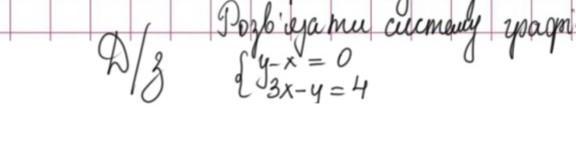 Розв'язати систему граф
Д/з
{ y-x = 0
3x-y = 4